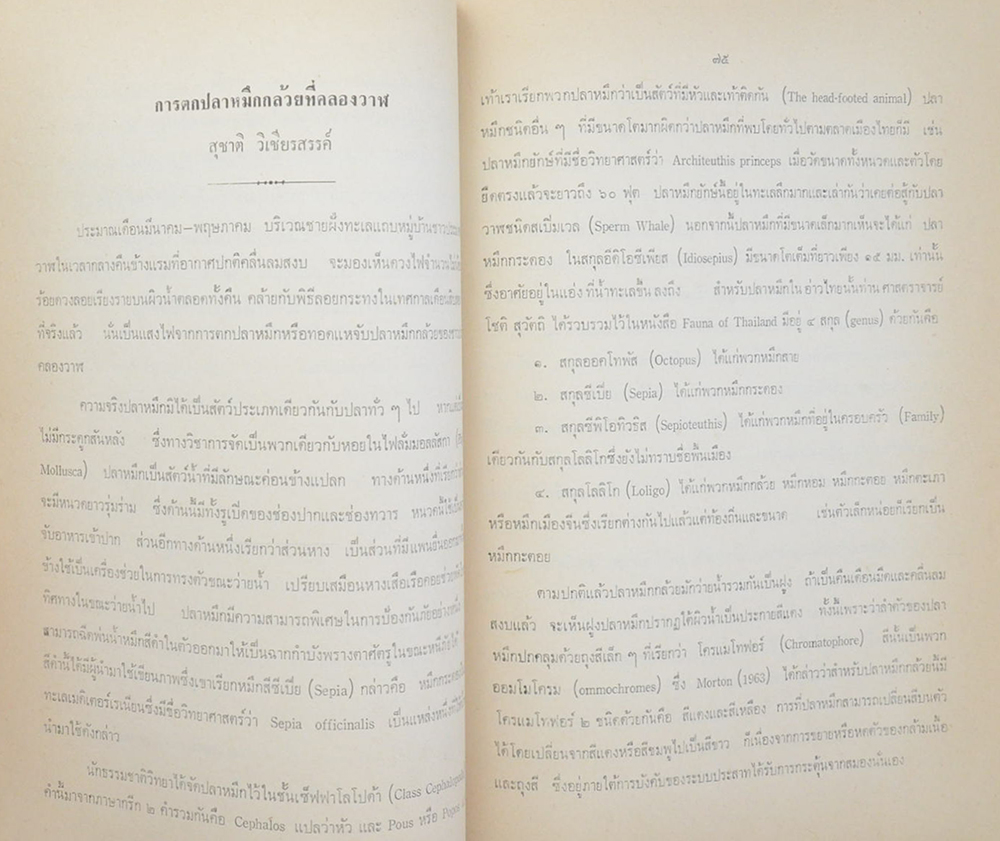 การตกปลาหมึกกล้วยที่คลองวาฬ
สุชาติ วิเชียรสรรค์
ประมาณเดือนมีนาคม–พฤษภาคม บริเวณชายฝั่งทะเลแถบหมู่บ้านชาว
วาฬในเวลากลางคืนข้างแรมที่อากาศปกติคลื่นลมสงบ จะมองเห็นดวงไฟจำนวน
ร้อยดวงลอยเรียงรายบนผิวน้ำตลอดทั้งคืน คล้ายกับพิธีลอยกระทงในเทศกาลเดือน
ที่จริงแล้ว นั่นเป็นแสงไฟจากการตกปลาหมึกหรือทอดแหจับปลาหมึกกล้วยของ
คลองวาฬ
ความจริงปลาหมึกมิได้เป็นสัตว์ประเภทเดียวกันกับปลาทั่ว ๆ ไป
ไม่มีกระดูกสันหลัง ซึ่งทางวิชาการจัดเป็นพวกเดียวกับหอยในไฟลั่มมอลลัสกา
Mollusca) ปลาหมึกเป็นสัตว์น้ำที่มีลักษณะค่อนข้างแปลก ทางด้านหนึ่งที่เรียกว่า
จะมีหนวดยาวรุ่มร่าม ซึ่งด้านนี้มีทั้งรูเปิดของช่องปากและช่องทวาร หนวดนี้ใช้
จับอาหารเข้าปาก ส่วนอีกทางด้านหนึ่งเรียกว่าส่วนหาง เป็นส่วนที่มีแพนยื่นออก
ข้างใช้เป็นเครื่องช่วยในการทรงตัวขณะว่ายน้ำ เปรียบเสมือนหางเสือเรือคอยช่วย
ทิศทางในขณะว่ายน้ำไป ปลาหมึกมีความสามารถพิเศษในการป้องกันภัยอย่างหนึ่ง
สามารถฉีดพ่นน้ำหมึกสีดำในตัวออกมาให้เป็นฉากกำบังพรางตาศัตรูในขณะหนีภัยได้
สีดำนี้ได้มีผู้นำมาใช้เขียนภาพซึ่งเขาเรียกหมึกสีซีเปีย (Sepia) กล่าวคือ หมึกกระดอง
ทะเลเมดิเตอร์เรเนียนซึ่งมีชื่อวิทยาศาสตร์ว่า Sepia officinalis เป็นแหล่งหนึ่ง
นำมาใช้ดังกล่าว
นักธรรมชาติวิทยาได้จัดปลาหมึกไว้ในชั้นเซ็ฟฟาโลโปด้า (Class
คำนี้มาจากภาษากรีก ๒ คำรวมกันคือ Cephalos แปลว่าหัว และ Pous หรือ
๗๕
เท้าเราเรียกพวกปลาหมึกว่าเป็นสัตว์ที่มีหัวและเท้าติดกัน (The head-footed animal) ปลา
หมึกชนิดอื่น ๆ ที่มีขนาดโตมากผิดกว่าปลาหมึกที่พบโดยทั่วไปตามตลาดเมืองไทยก็มี เช่น
ปลาหมึกยักษ์ที่มีชื่อวิทยาศาสตร์ว่า Architeuthis princeps เมื่อวัดขนาดทั้งหนวดและตัวโดย
ยืดตรงแล้วจะยาวถึง ๖๐ ฟุต ปลาหมึกยักษ์นี้อยู่ในทะเลลึกมากและเล่ากันว่าเคยต่อสู้กับปลา
วาฬชนิดสเปิมเวล (Sperm Whale) นอกจากนี้ปลาหมึกที่มีขนาดเล็กมากเห็นจะได้แก่ ปลา
หมึกกระดอง ในสกุลอิดิโอซีเพียส (Idiosepius) มีขนาดโตเต็มที่ยาวเพียง ๑๕ มม. เท่านั้น
ซึ่งอาศัยอยู่ในแอ่ง ที่น้ำทะเลขึ้น ลงถึง สำหรับปลาหมึกใน อ่าวไทยนั้นท่าน ศาสตราจารย์
โชติ สุวัตถิ ได้รวบรวมไว้ในหนังสือ Fauna of Thailand มีอยู่ ๔ สกุล (genus) ด้วยกันคือ
๑. สกุลออคโทพัส (Octopus) ได้แก่พวกหมึกสาย
๒. สกุลซีเปีย (Sepia) ได้แก่พวกหมึกกระดอง
๓. สกุลซีพิโอทิวธิส (Sepioteuthis) ได้แก่พวกหมึกที่อยู่ในครอบครัว (Family)
เดียวกันกับสกุลโลลิโกซึ่งยังไม่ทราบชื่อพื้นเมือง
๔. สกุลโลลิโก (Loligo) ได้แก่พวกหมึกกล้วย หมึกหอม หมึกกะตอย หมึกตะเภา
หรือหมึกเมืองจีนซึ่งเรียกต่างกันไปแล้วแต่ท้องถิ่นและขนาด เช่นตัวเล็กหน่อยก็เรียกเป็น
หมึกกะตอย
ตามปกติแล้วปลาหมึกกล้วยมักว่ายน้ำรวมกันเป็นฝูง ถ้าเป็นคืนเดือนมืดและคลื่นลม
สงบแล้ว จะเห็นฝูงปลาหมึกปรากฏใต้ผิวน้ำเป็นประกายสีแดง ทั้งนี้เพราะว่าลำตัวของปลา
หมึกปกคลุมด้วยถุงสีเล็ก ๆ ที่เรียกว่า โครแมโทฟอร์ (Chromatophore) สีนั้นเป็นพวก
ออมโมโครม (ommochromes) ซึ่ง Morton (1963) ได้กล่าวว่าสำหรับปลาหมึกกล้วยนี้มี
โครแมโทฟอร์ ๒ ชนิดด้วยกันคือ สีแดงและสีเหลือง การที่ปลาหมึกสามารถเปลี่ยนสีบนตัว
ได้โดยเปลี่ยนจากสีแดงหรือสีชมพูไปเป็นสีขาว ก็เนื่องจากการขยายหรือหดตัวของกล้ามเนื้อ
และถุงสี ซึ่งอยู่ภายใต้การบังคับของระบบประสาทได้รับการกระตุ้นจากสมองนั่นเอง